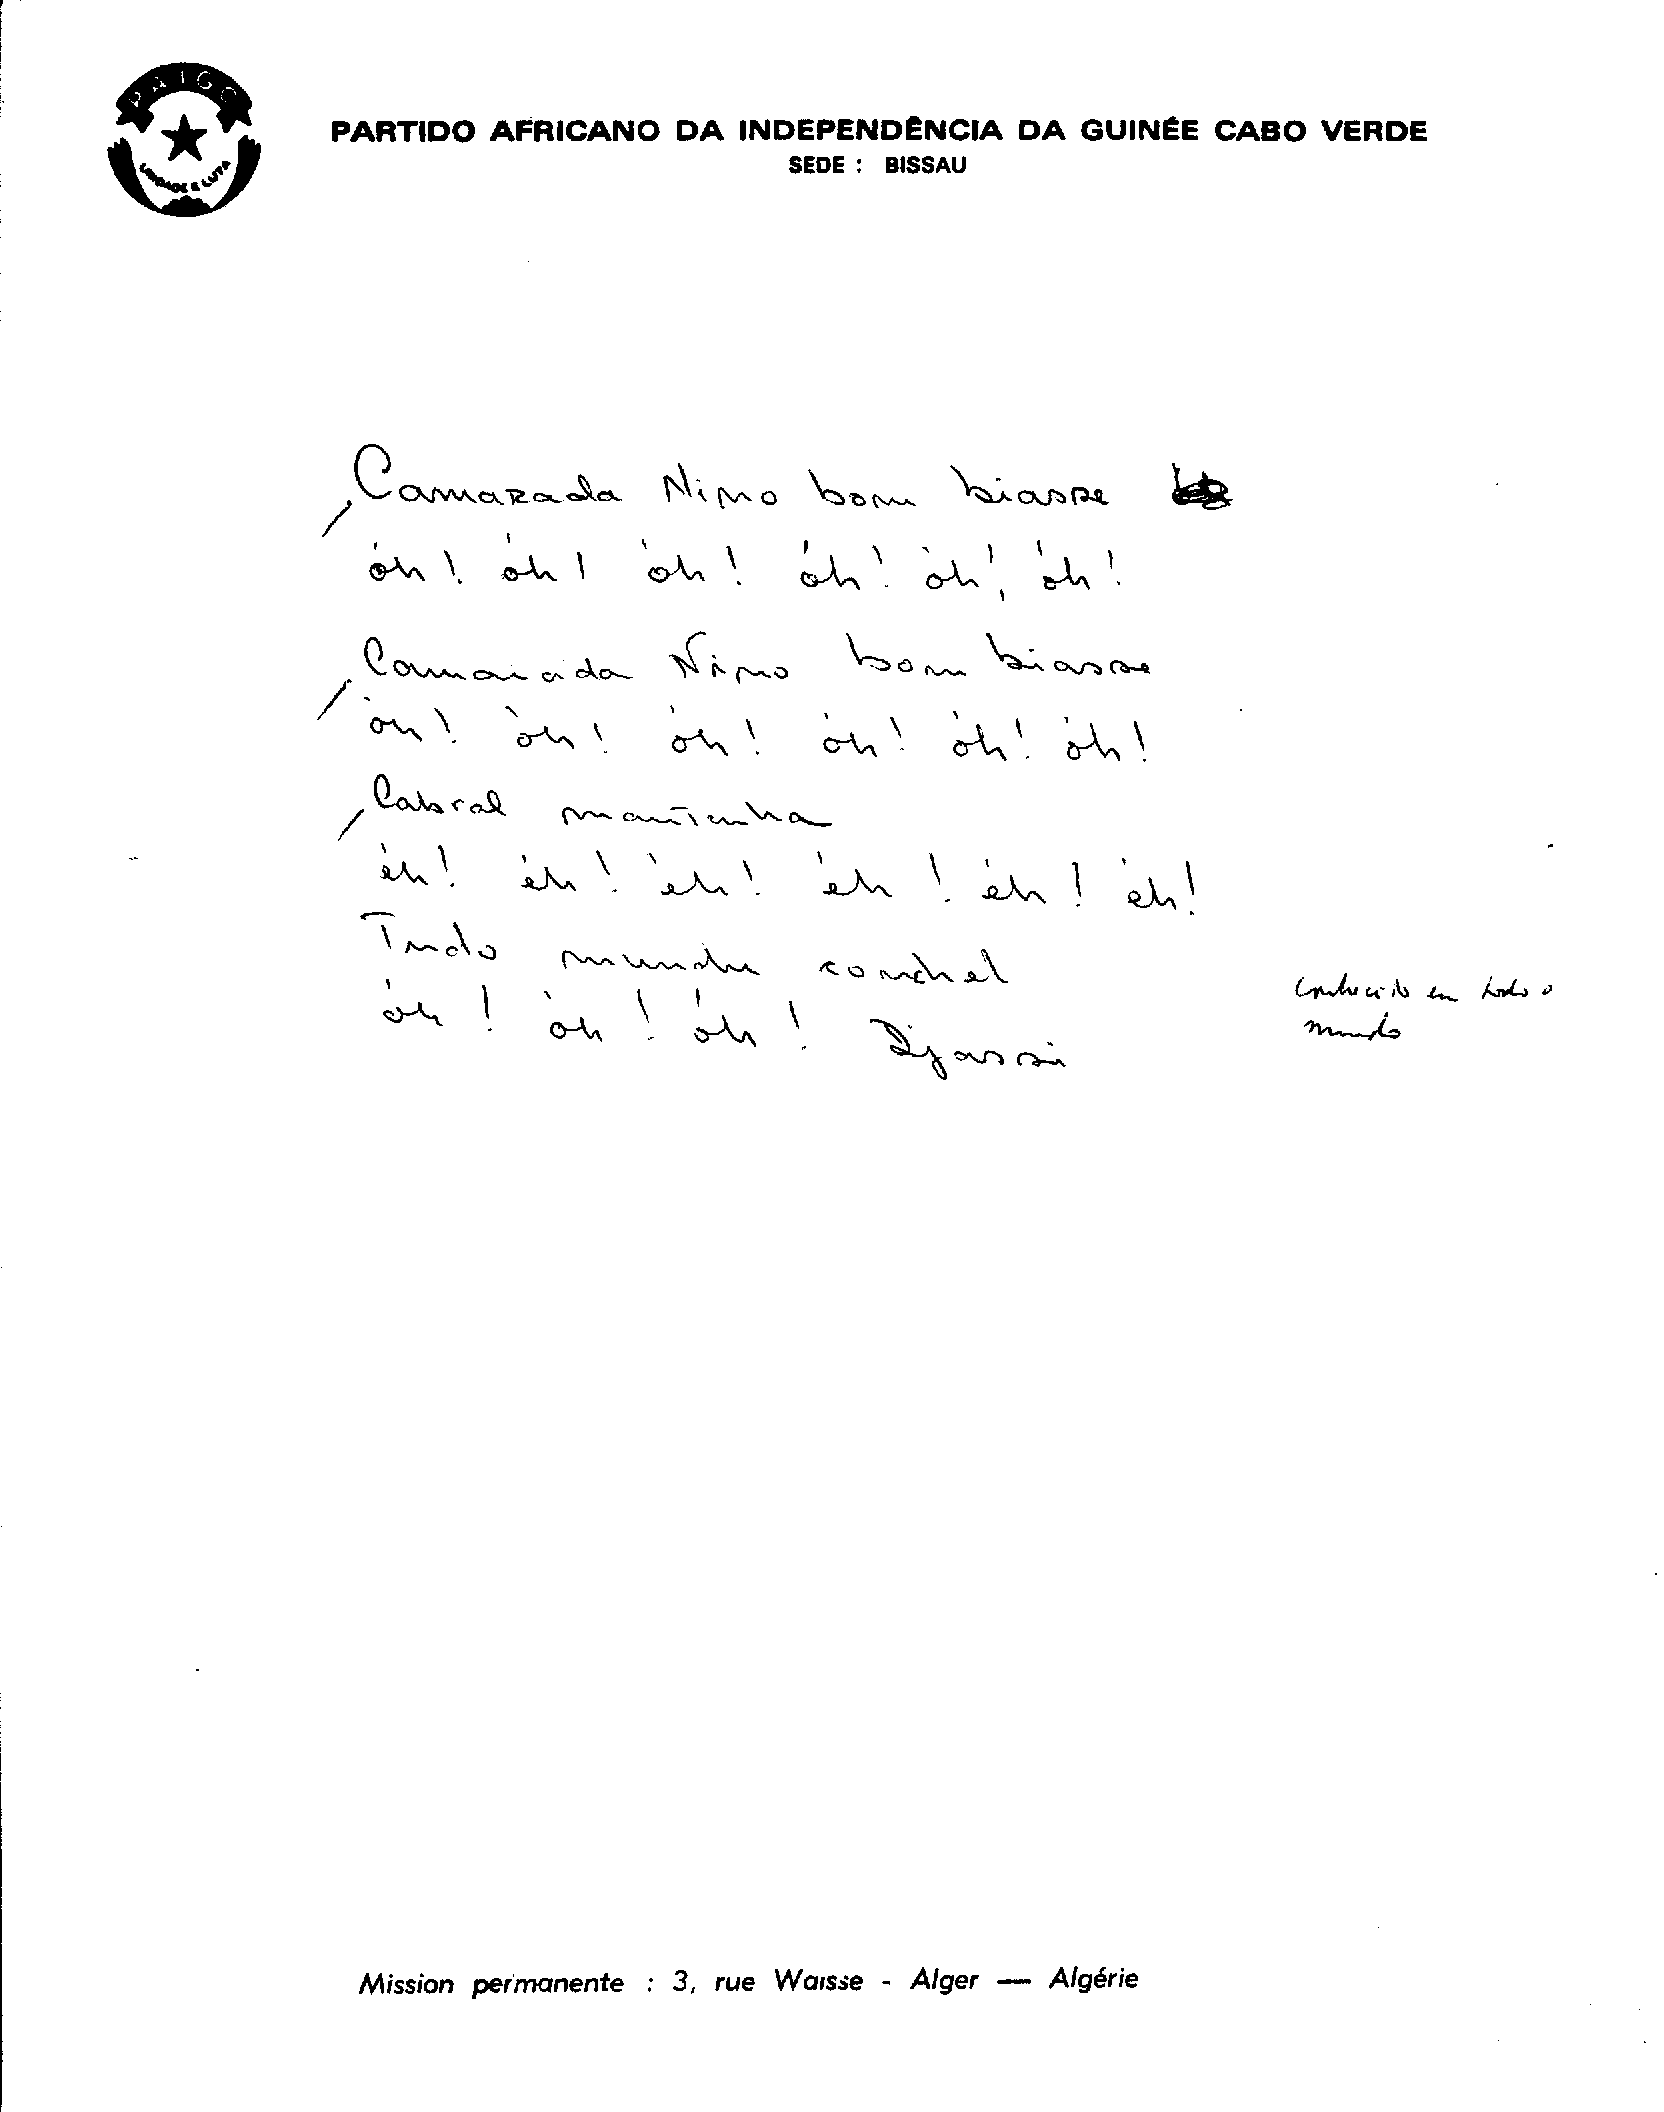 PAIGC
UNIDADE E LUTA
PARTIDO AFRICANO DA INDEPENDÊNCIA DA GUINÉE CABO VERDE
SEDE : BISSAU
Camarada Nino bom biasse
óh! óh! óh! óh! óh! óh!
Camarada Nino bom biasse
óh! óh! óh! óh! óh! óh!
Cabral mantenha
éh! éh! éh! éh! éh! éh!
Tudo mundu conchel
óh! óh! óh! Djassi
conhecido em todo o
mundo
Mission permanente : 3, rue Waisse - Alger — Algérie